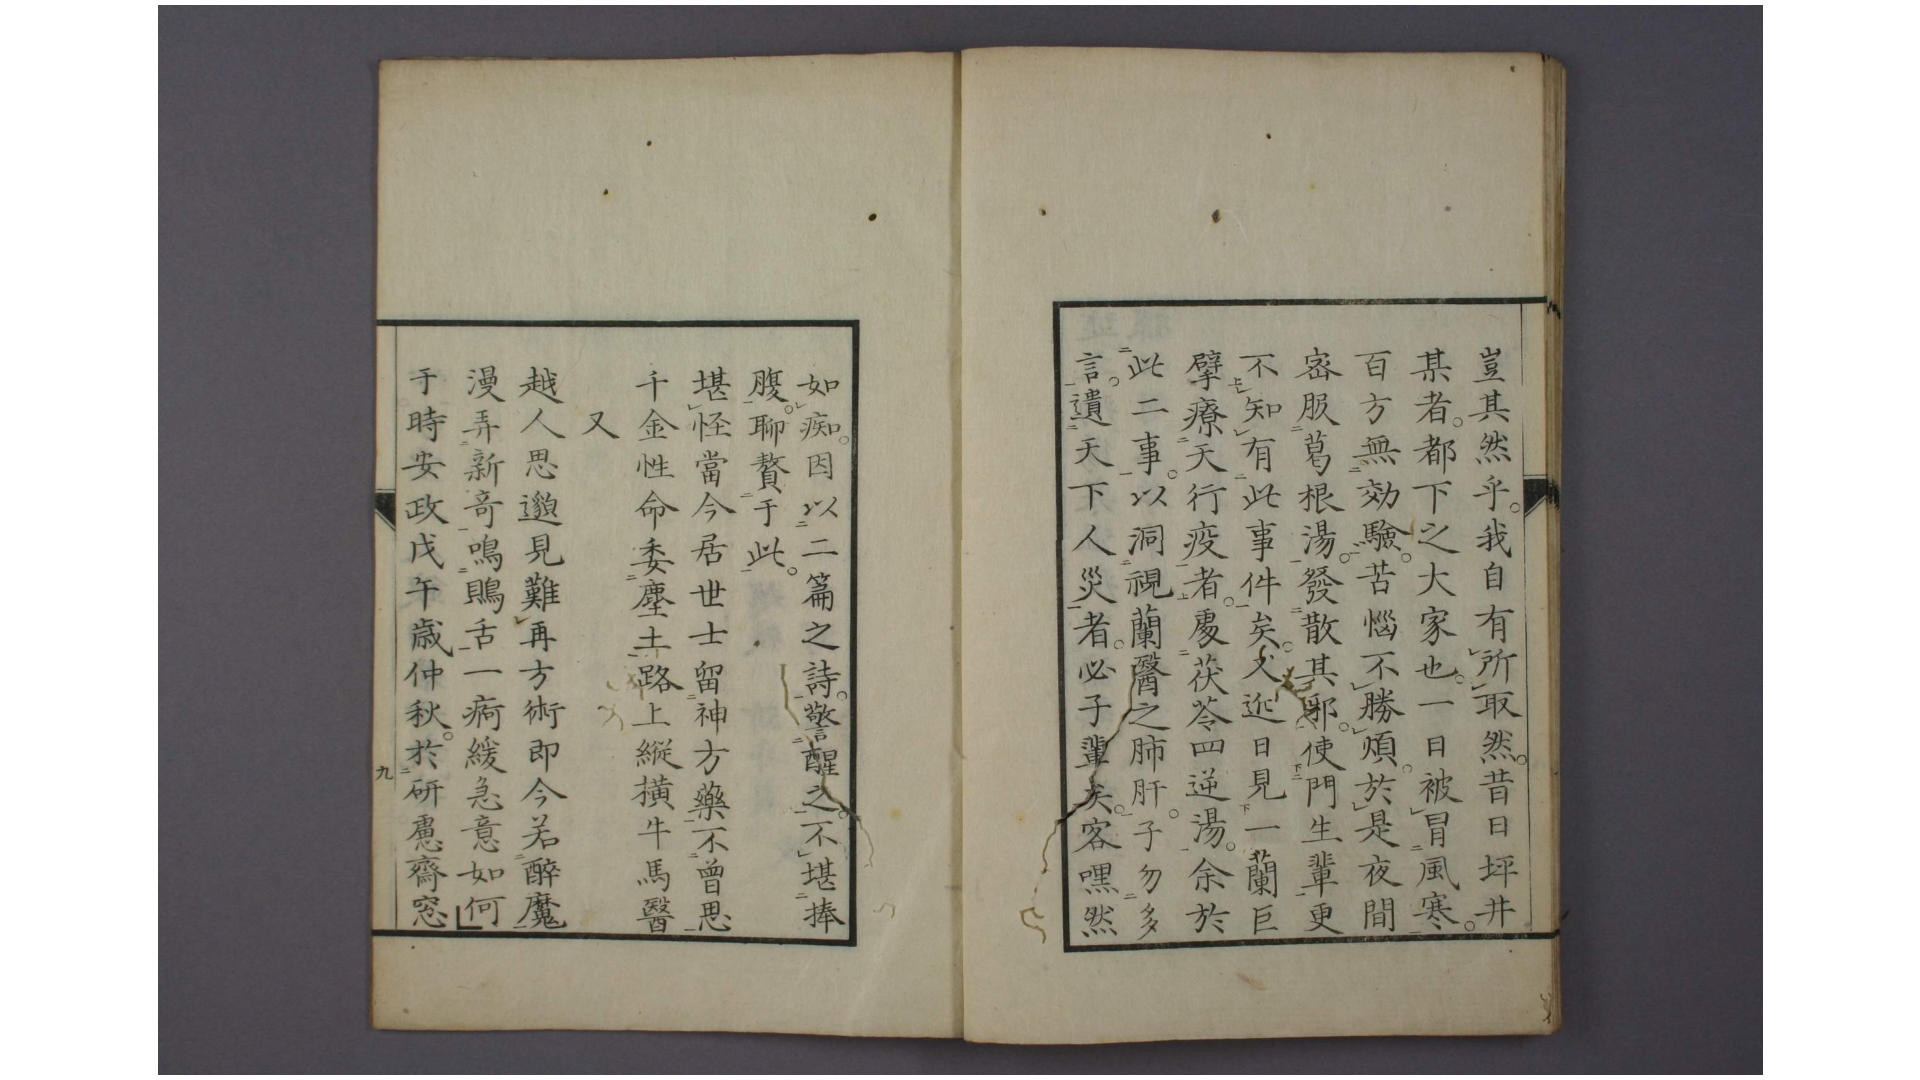 豈其然乎。我自有所取然。昔日坪井
某者。都下之大家也。一日被冒風寒。
百方無効驗。苦惱不勝煩。於是夜間
密服葛根湯。發散其邪。使門生輩更
不知有此事件矣。又近日見一蘭巨
擘療天行疫者。處茯苓四逆湯。余於
此二事。以洞視蘭醫之肺肝。子勿多
言。遺天下人災者。必子輩矣。客嘿然
如痴。因以二篇之詩。警醒之。不堪捧
腹。聊贅于此。
堪怪當今居世士留神方藥不曾思
千金性命委塵土路上縱橫牛馬醫
又
越人思邈見難再方術即今若醉魔
漫弄新奇鳴鴃舌一痾緩急意如何
于時安政戊午歳仲秋。於研慮齋窓
九